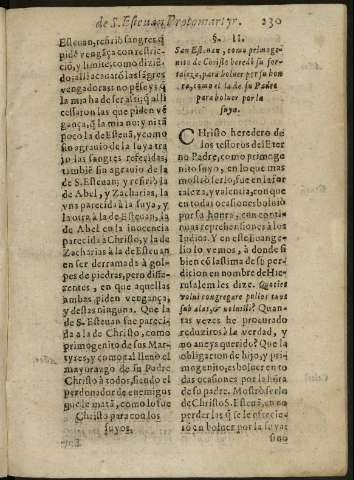 de S. Esteuan Protomartyr. 230
Esteuan, refirio sangres q̃
pidẽ vengãça con restric-
ciõ, y limite, como diziẽ-
do: alli acabarõ las sagres
vengadoras: no peleys q̃
la mia ha de ser así; q̃ alli
cessaron las que piden vẽ
gãça, q̃ la mia no: y ni tã
poco la de Esteuã, y como
sin agrauio de la suya tra
jo las sangres referidas,
tambiẽ sin agrauio de la
de S. Esteuan; y refirió la
de Abel, y Zacharias, la
vna parecida à la suya, y
la otra à la de Esteuan, la
de Abel en la inocencia
parecida à Christo, y la de
Zacharias à la de Esteuan
en ser derramada à gol-
pes de piedras, pero diffe-
rentes, en que aquellas
ambas, piden vengança,
y destas ninguna. Que la
de S. Esteuan fue pareci-
da à la de Christo, como
primogenito de sus Mar-
tyres, y como tal lleuò el
mayorazgo de su Padre
Christo à todos, siendo el
perdonador de enemigos
que le matã, como lo fue
Christo para con los
suyos.
§. II.
San Esteuan, como primoge-
nito de Christo heredò su for-
taleza, para boluer por su hon
ra, como el la de su Padre
para boluer por la
suya.
CHristo heredero de
los tesoros del Eter
no Padre, como primoge
nito suyo, en lo que mas
mostrò serlo, fue en la for
taleza, y valencia, con que
en todas ocasiones boluiò
por su honra, con conti-
nuas reprehensiones à los
Iudios. Y en este Euange-
lio lo vemos, à donde si
bien cõ lastima de su per-
dicion en nombre de Hie-
rusalem les dize. Quoties
volui congregare pullos tuos
sub alas, & noluisti? Quan-
tas vezes he procurado
reduziros à la verdad, y
no aueys querido? Que la
obligacion de hijo, y pri-
mogenito, es boluer en to
das ocasiones por la hõra
de su padre. Mostrò serlo
de Christo S. Esteuã, en no
perder las q̃ se le ofrecie-
rõ en boluer por la suya:
sino